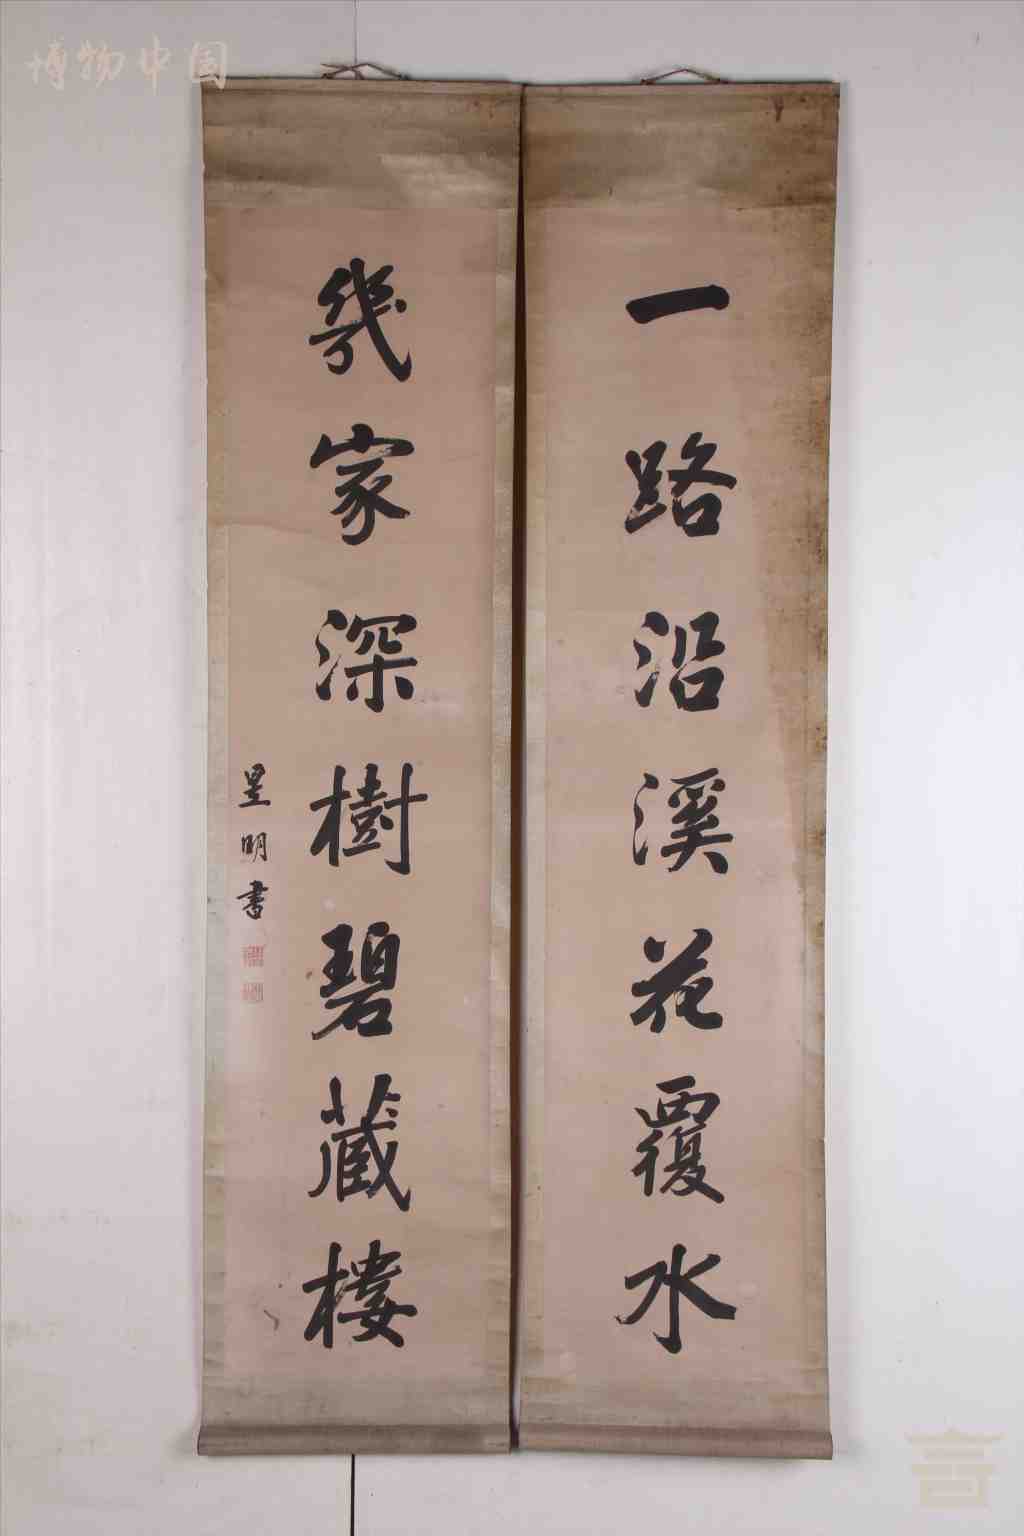 博物中国
一路沿溪花覆水
幾家深樹碧藏樓
昱明書